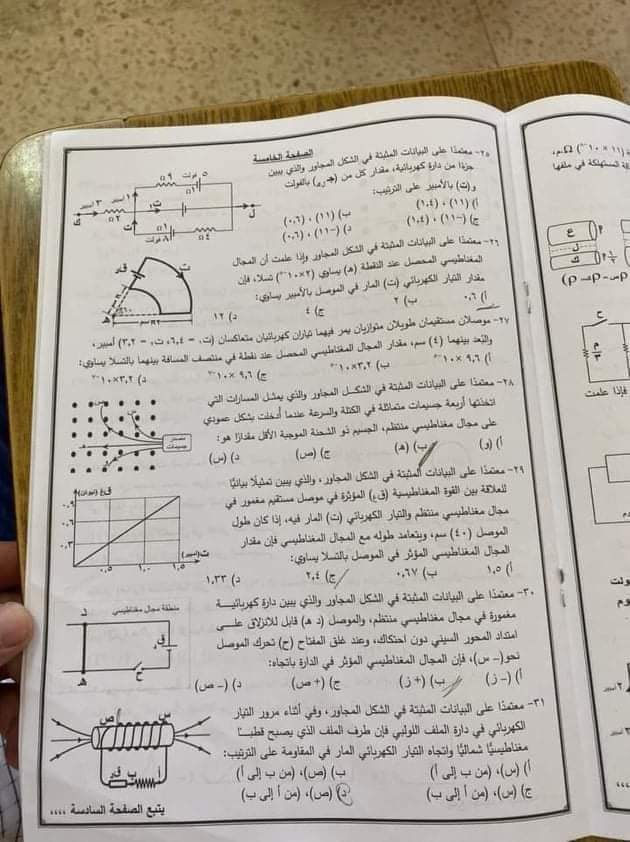 الصفحة الخامسة
٢٥- معتمدًا على البيانات المثبتة في الشكل المجاور والذي يبين
جزءًا من دارة كهربائية، مقدار كل من
و(ت) بالأمبير على الترتيب:
أ) (١١)، (١,٤)
ب) (١١)، (٠,٦)
ج) (-١١)، (١,٤)
د) (-١١)، (٠,٦)
٢٦- معتمدًا على البيانات المثبتة في الشكل المجاور وإذا علمت أن المجال
المغناطيسي المحصل عند النقطة (هـ) يساوي تسلا، فإن
مقدار التيار الكهربائي (ت) المار في الموصل بالأمبير يساوي:
أ) ٠,٦ ب) ٢ ج) ٤ د) ١٢
٢٧- موصلان مستقيمان طويلان متوازيان يمر فيهما تياران كهربائيان متعاكسان (ت١ = ٦,٤، ت٢ = ٣,٢) أمبير،
والبُعد بينهما (٤) سم، مقدار المجال المغناطيسي المحصل عند نقطة في منتصف المسافة بينهما بالتسلا يساوي:
٢٨- معتمدًا على البيانات المثبتة في الشكل المجاور والذي يمثل المسارات التي
اتخذتها أربعة جسيمات متماثلة في الكتلة والسرعة عندما أدخلت بشكل عمودي
على مجال مغناطيسي منتظم، الجسيم ذو الشحنة الموجبة الأقل مقدارًا هو:
أ) (و) ب) (هـ) ج) (ص) د) (س)
مصدر
جسيمات
٢٩- معتمدًا على البيانات المثبتة في الشكل المجاور، والذي يبين تمثيلًا بيانيًا
للعلاقة بين القوة المغناطيسية (ق غ) المؤثرة في موصل مستقيم مغمور في
مجال مغناطيسي منتظم والتيار الكهربائي (ت) المار فيه، إذا كان طول
الموصل (٤٠) سم، ويتعامد طوله مع المجال المغناطيسي فإن مقدار
المجال المغناطيسي المؤثر في الموصل بالتسلا يساوي:
أ) ١,٥ ب) ٠,٦٧ ج) ٢,٤ د) ١,٣٣
ق غ (نيوتن)
٠,٩
٠,٦
٠,٣
٠,٥ ١,٠ ١,٥ ت (أمبير)
٣٠- معتمدًا على البيانات المثبتة في الشكل المجاور والذي يبين دارة كهربائية
مغمورة في مجال مغناطيسي منتظم، والموصل (د هـ) قابل للانزلاق على
امتداد المحور السيني دون احتكاك، وعند غلق المفتاح (ح) تحرك الموصل
نحو(- س)، فإن المجال المغناطيسي المؤثر في الدارة باتجاه:
أ) (- ز) ب) (+ ز) ج) (+ ص) د) (- ص)
منطقة مجال مغناطيسي
د
هـ
ح
٣١- معتمدًا على البيانات المثبتة في الشكل المجاور، وفي أثناء مرور التيار
الكهربائي في دارة الملف اللولبي فإن طرف الملف الذي يصبح قطبًا
مغناطيسيًا شماليًا واتجاه التيار الكهربائي المار في المقاومة على الترتيب:
أ) (س)، (من ب إلى أ)
ب) (ص)، (من ب إلى أ)
ج) (س)، (من أ إلى ب)
د) (ص)، (من أ إلى ب)
س
ص
أ
ب
يتبع الصفحة السادسة ،،،،